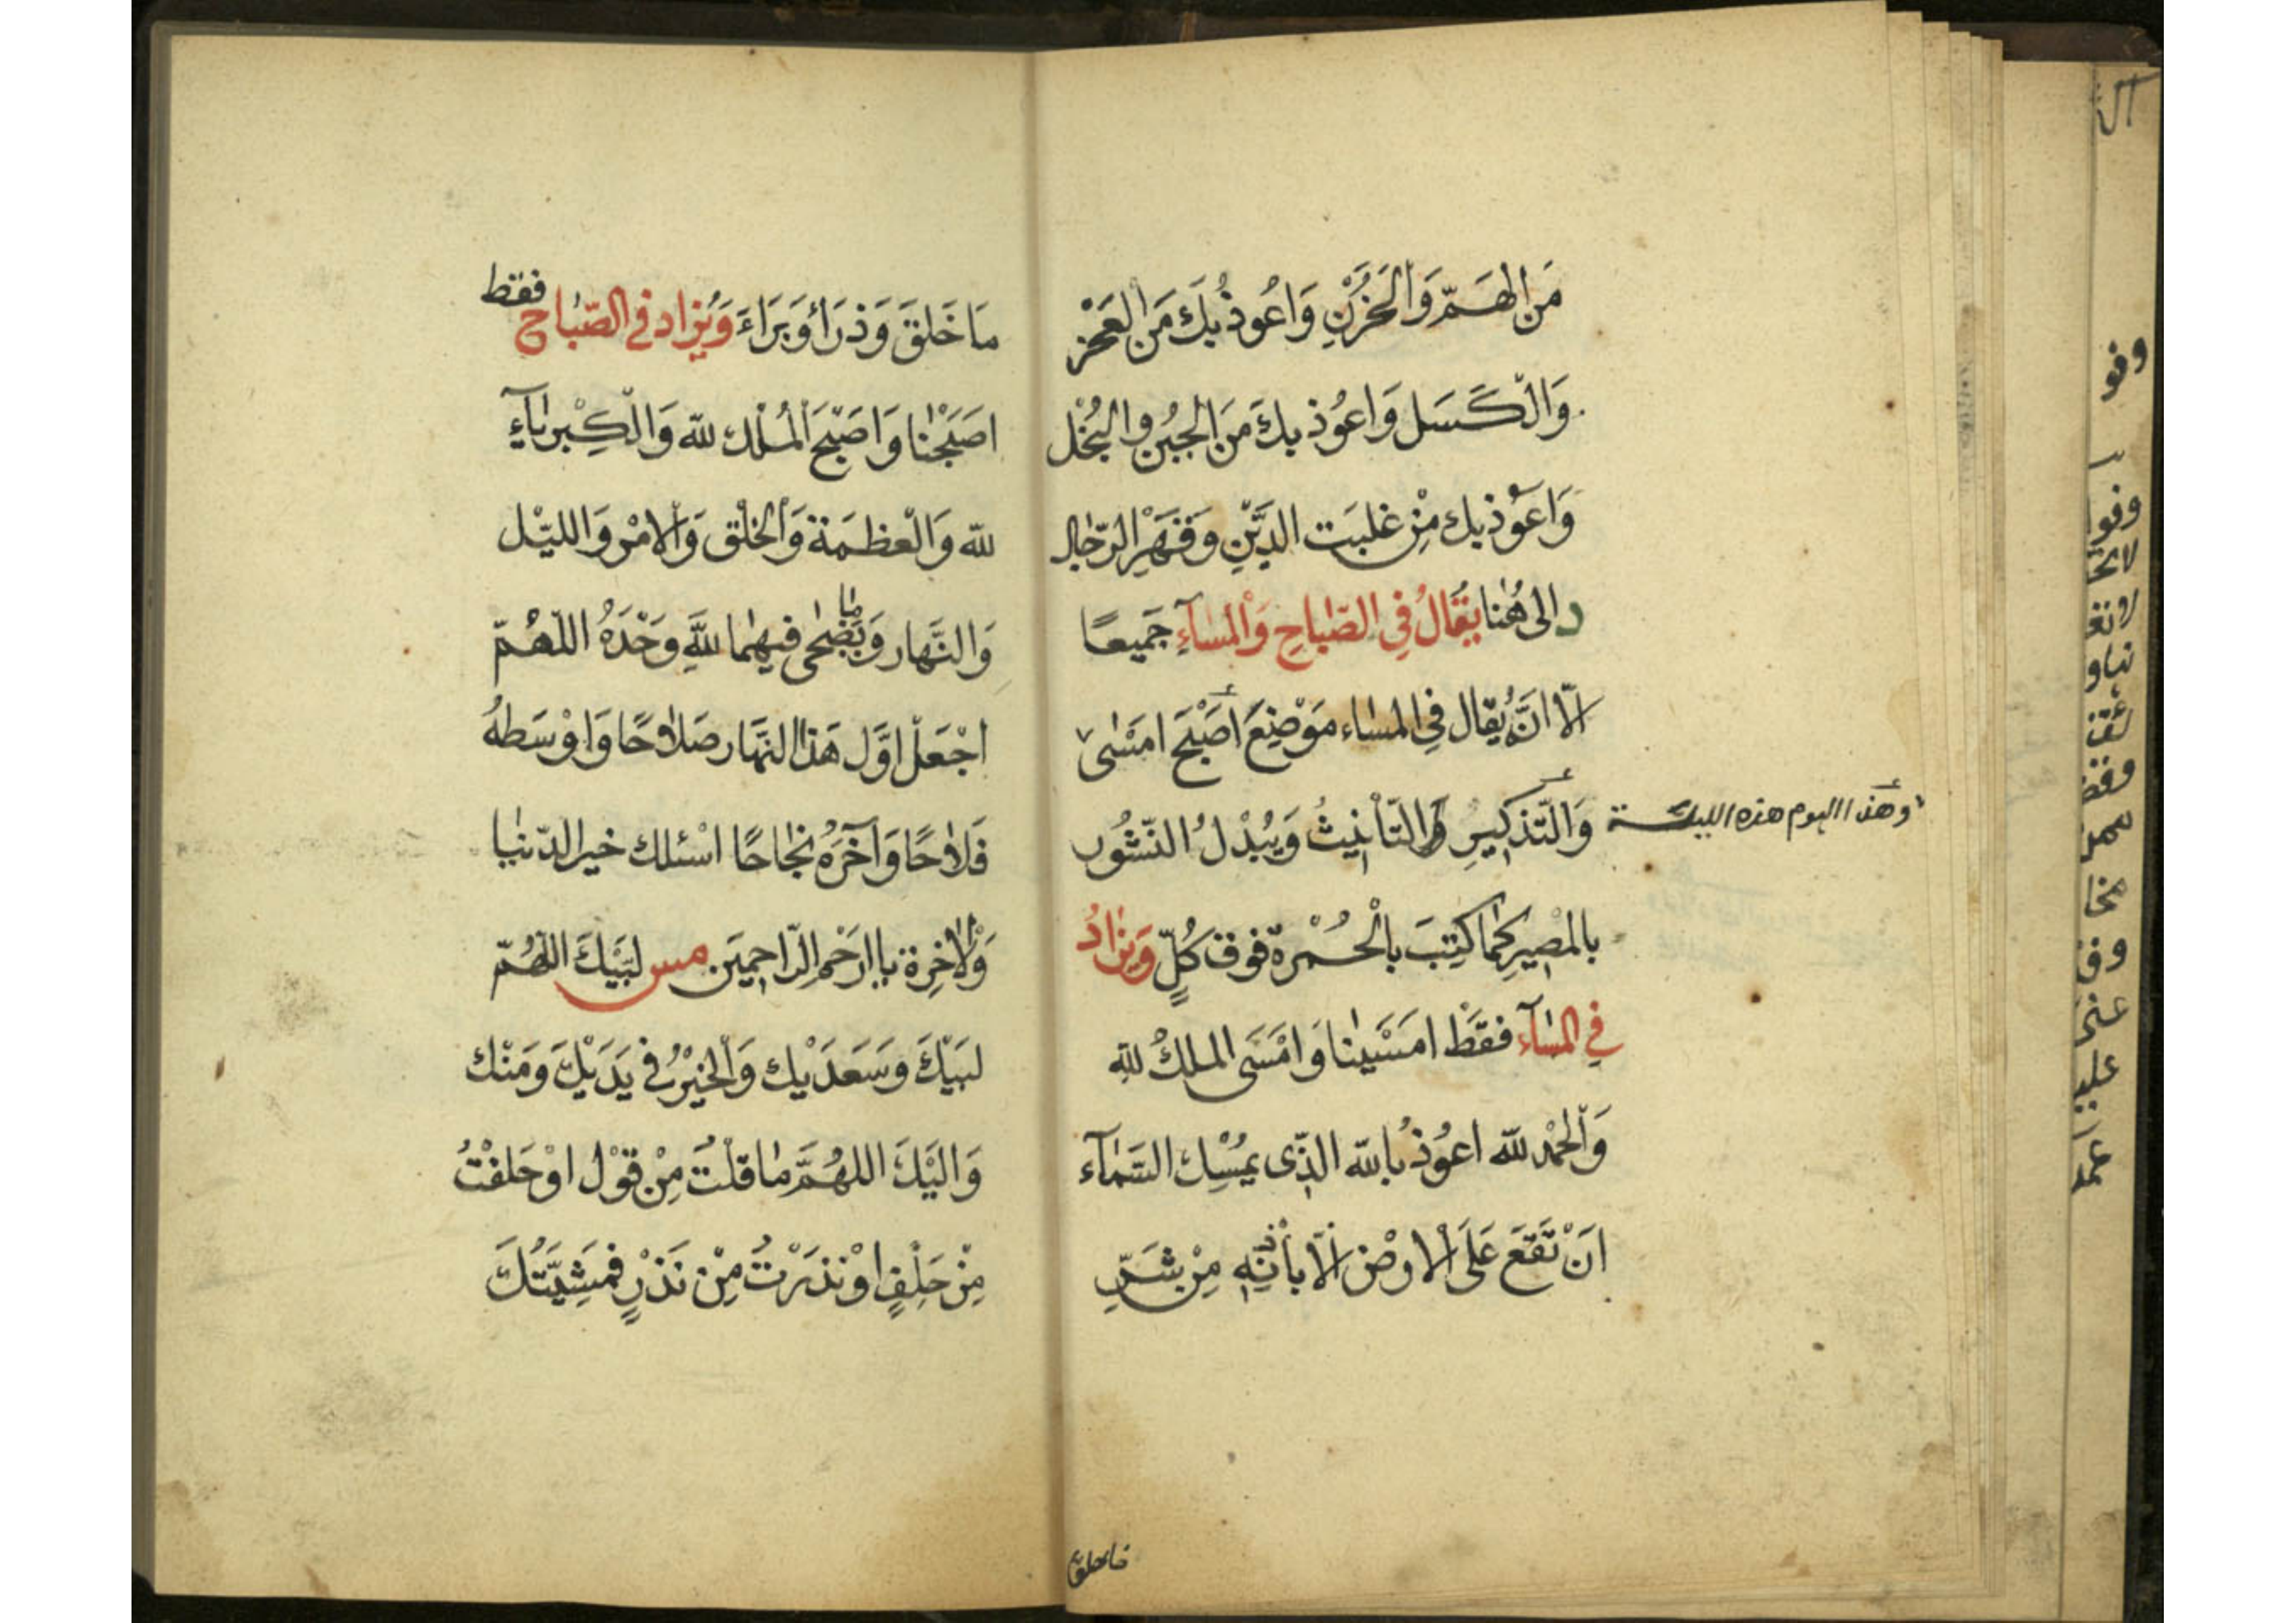 مَن الهَمّ وَالْحَزَنِ وَاَعُوذُ بِكَ مَن العَجْز
وَالْكَسَل وَاعوُذ بِكَ مَن الجُبْنِ والبُخْل
وَاَعوُذ بِك مِنْ غلبَت الدَّيْنِ وَقَهْرِ الرّجٰال
د الى هُنا يقَالُ فِي الصّبٰاحِ وَالْمسٰآءِ جَميعًا
الّا انَّهُ يُقٰال فِي المسٰاء مَوْضِعَ أصْبَحَ امَسْىٰ
وَالتّذكيرِ وَالتّأنيثُ وَيُبْدلُ النّشُور
وهذا اليوم هذه الليلة
بالمصيرِ كمٰا كتِبَ بالْحُمْرة فوق كُلٍّ وَيزٰادُ
فِي المسٰآء فقَطْ امَسَيْنٰا وَامْسَى الملكُ للهِ
وَالْحَمْد للّه اعوُذُ باللّه الذّى يمْسِك السّمٰآء
انَ تَقَعَ عَلَى الاوْض الّا بأذنِهِ مِنْ شَرِّ
مٰا خلق
مَا خَلَقَ وَذرَأ وَبَرَاءَ وَيُزاد في الصّباح فقط
اصَبَحْنٰا وَاصَبْحَ الْمُلْك للّه وَالْكِبْريٰآءِ
للّه وَالْعظمَة وَالْخَلْق وَالْامْر وَالليّل
وَالنَّهٰار وَمٰا يَضْحٰى فيهِمٰا للَّهِ وَحْدَهُ اللّهُمّ
اجْعَلْ اوَّل هَذا النهَّار صَلاٰحًا وَاوْسَطهُ
فَلاٰحًا وَآخَرَهُ نجَاحًا اسْئلك خير الدّنيٰا
وَالْاٰخِرة يا ارَحْم الرّاحِمِيَن مس لبَيّكَ اللّهُمّ
لبَيْكَ وَسَعَدَيْك وَالْخيْرُ في يَدَيْكَ وَمَنْك
وَاليَْكَ اللهُمَّ مٰا قلْتُ مِنْ قوْل اوْ حَلفْتُ
مِنْ حَلِفٍ اوْ نذَرْتُ مِنْ نَذْرٍ فمَشِيّتُكَ